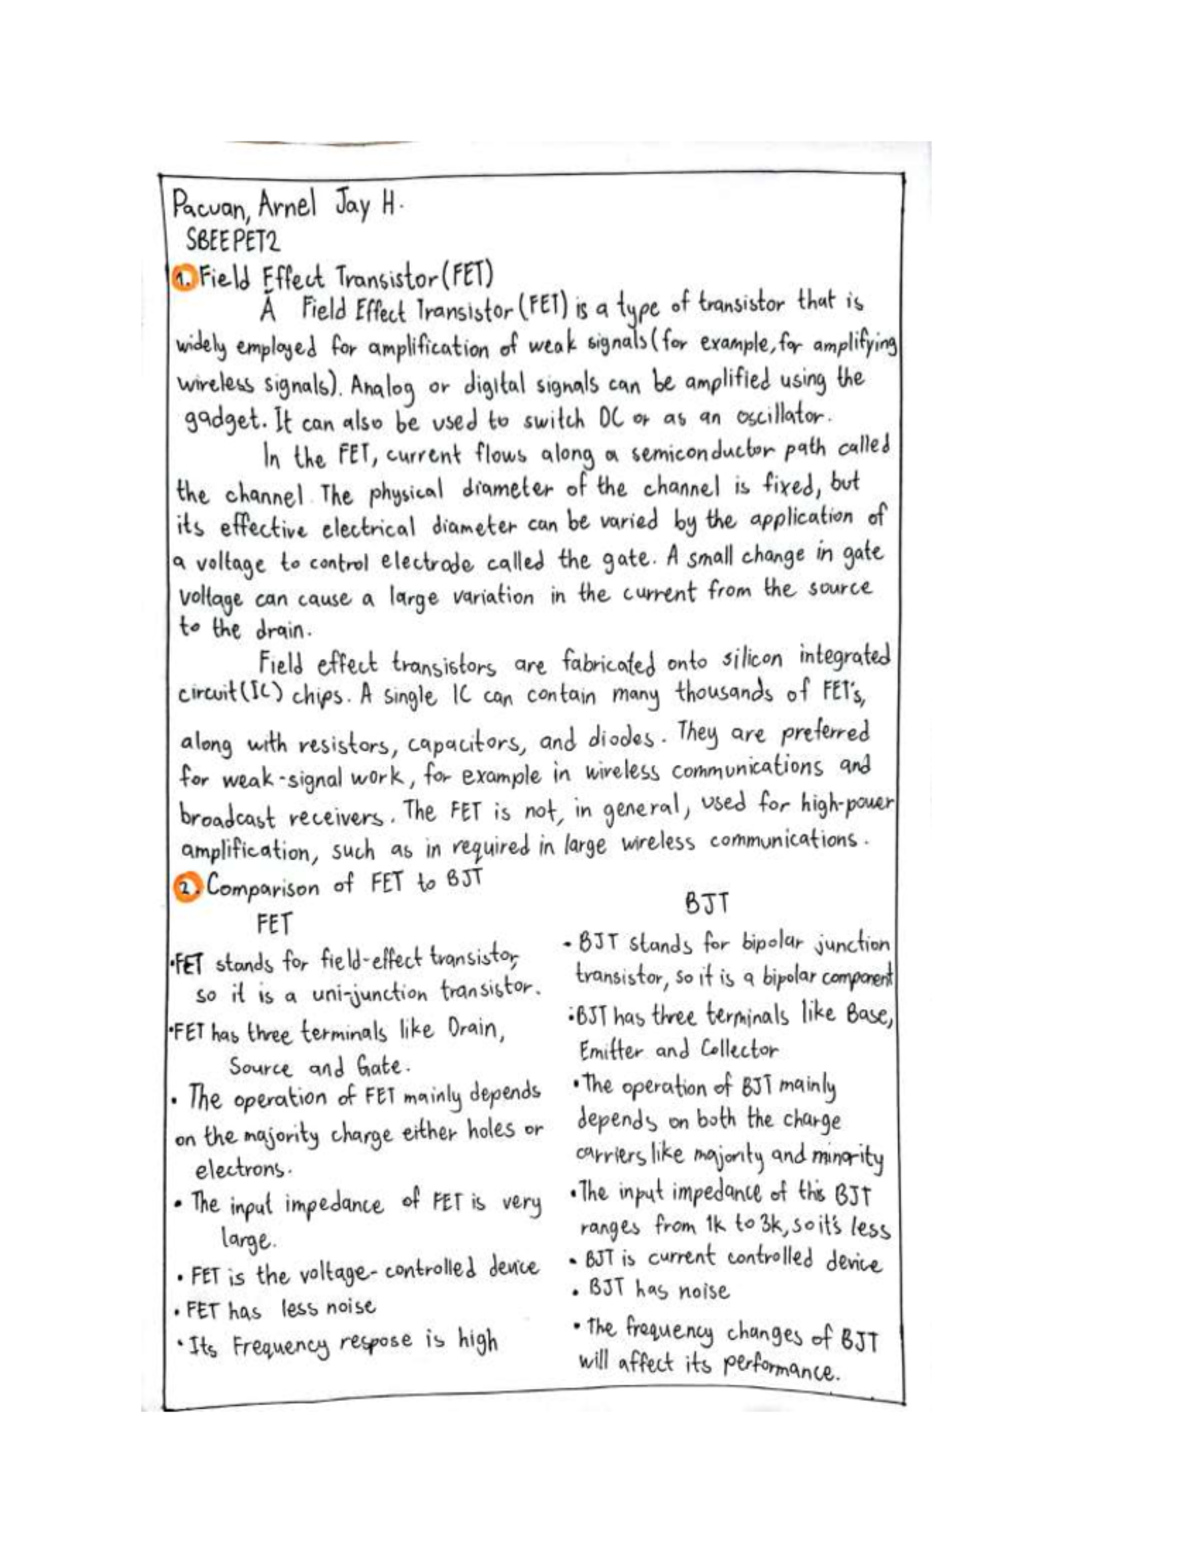 Pacuan, Arnel Jay H.
SBEEPET2
1. Field Effect Transistor (FET)
A Field Effect Transistor (FET) is a type of transistor that is
widely employed for amplification of weak signals (for example, for amplifying
wireless signals). Analog or digital signals can be amplified using the
gadget. It can also be used to switch DC or as an oscillator.
In the FET, current flows along a semiconductor path called
the channel. The physical diameter of the channel is fixed, but
its effective electrical diameter can be varied by the application of
a voltage to control electrode called the gate. A small change in gate
voltage can cause a large variation in the current from the source
to the drain.
Field effect transistors are fabricated onto silicon integrated
circuit (IC) chips. A single IC can contain many thousands of FET's,
along with resistors, capacitors, and diodes. They are preferred
for weak-signal work, for example in wireless communications and
broadcast receivers. The FET is not, in general, used for high-power
amplification, such as in required in large wireless communications.
2. Comparison of FET to BJT
FET
• FET stands for field-effect transistor,
so it is a uni-junction transistor.
• FET has three terminals like Drain,
Source and Gate.
• The operation of FET mainly depends
on the majority charge either holes or
electrons.
• The input impedance of FET is very
large.
• FET is the voltage-controlled device
• FET has less noise
• Its Frequency respose is high
BJT
• BJT stands for bipolar junction
transistor, so it is a bipolar component
• BJT has three terminals like Base,
Emitter and Collector
• The operation of BJT mainly
depends on both the charge
carriers like majority and minority
• The input impedance of this BJT
ranges from 1k to 3k, so it's less
• BJT is current controlled device
• BJT has noise
• The frequency changes of BJT
will affect its performance.